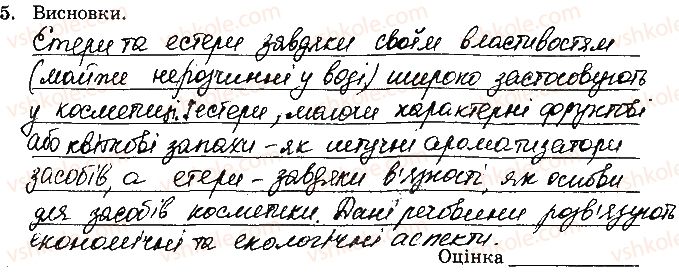 5. Висновки.
Етери та естери завдяки своїм властивостям
(майже нерозчинні у воді) широко застосовують
у косметиці. Естери, маючи характерні фруктові
або квіткові запахи – як штучні ароматизатори
засобів, а етери – завдяки в'язкості, як основи
для засобів косметики. Дані речовини розв'язують
економічні та екологічні аспекти.
Оцінка